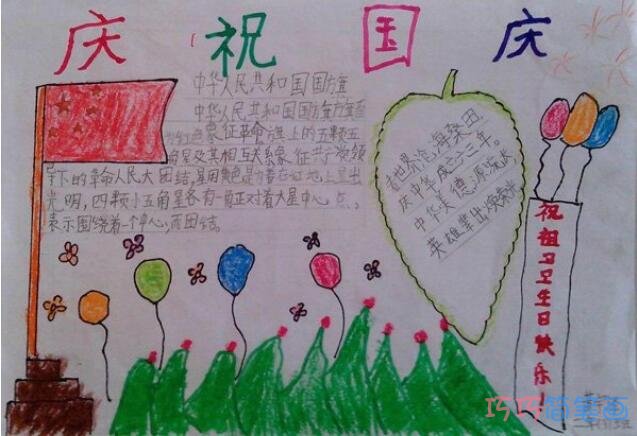 庆祝国庆
中华人民共和国国旗
中华人民共和国国旗旗面
的红色象征革命旗上的五颗五
角星及其相互关系象征共产党领
导下的革命人民大团结,星用黄色是为着在红地上显出
光明,四颗小五角星各有一角正对着大星中心点,
表示围绕着一个中心而团结。
看世界沧海桑田,
庆中华成立六三年。
中华美德源流长
英雄辈出
祝祖卫卫生日快乐!
巧巧简笔画